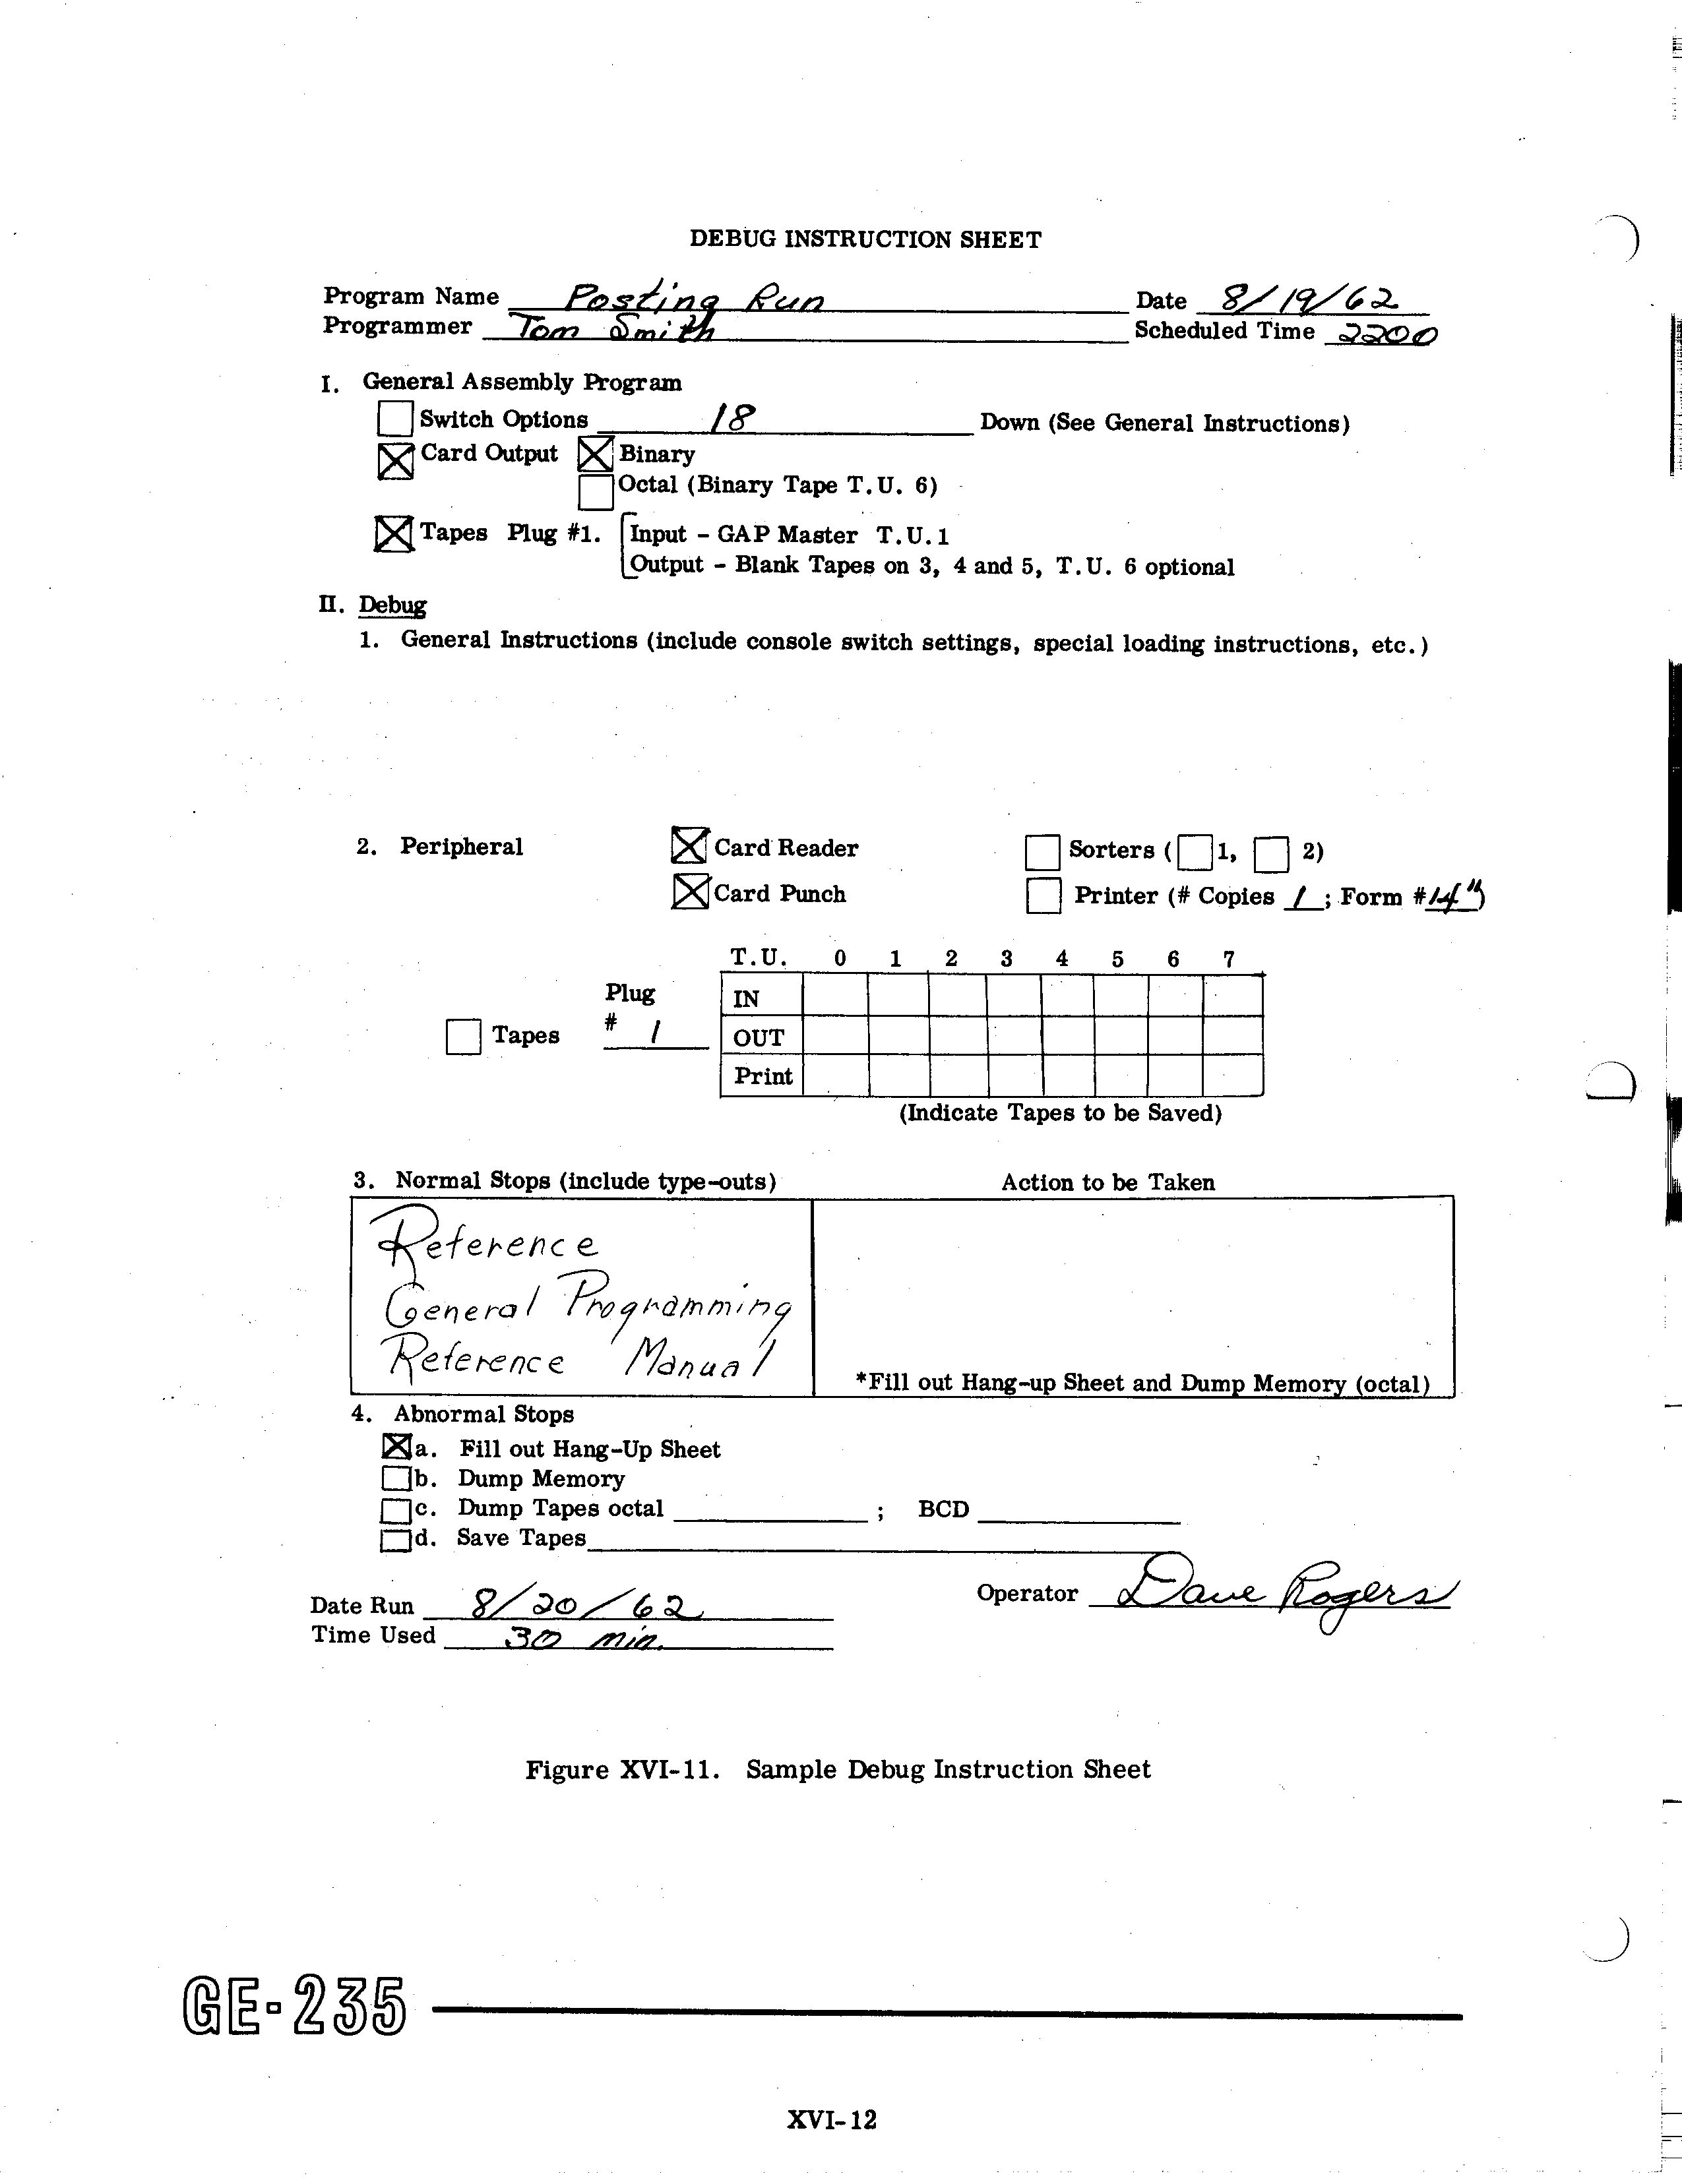 DEBUG INSTRUCTION SHEET
Program Name Posting Run Date 8/19/62
Programmer Tom Smith Scheduled Time 2200
I. General Assembly Program
Switch Options 18 Down (See General Instructions)
Card Output Binary
Octal (Binary Tape T.U. 6)
Tapes Plug #1. Input - GAP Master T.U.1
Output - Blank Tapes on 3, 4 and 5, T.U. 6 optional
II. Debug
1. General Instructions (include console switch settings, special loading instructions, etc.)
2. Peripheral Card Reader Sorters ( 1, 2)
Card Punch Printer (# Copies 1; Form #14")
T.U. 0 1 2 3 4 5 6 7
Plug IN
Tapes # 1 OUT
Print
(Indicate Tapes to be Saved)
3. Normal Stops (include type-outs) Action to be Taken
Reference
General Programming
Reference Manual
*Fill out Hang-up Sheet and Dump Memory (octal)
4. Abnormal Stops
a. Fill out Hang-Up Sheet
b. Dump Memory
c. Dump Tapes octal ; BCD
d. Save Tapes
Operator Dave Rogers
Date Run 8/20/62
Time Used 30 min.
Figure XVI-11. Sample Debug Instruction Sheet
GE-235
XVI-12